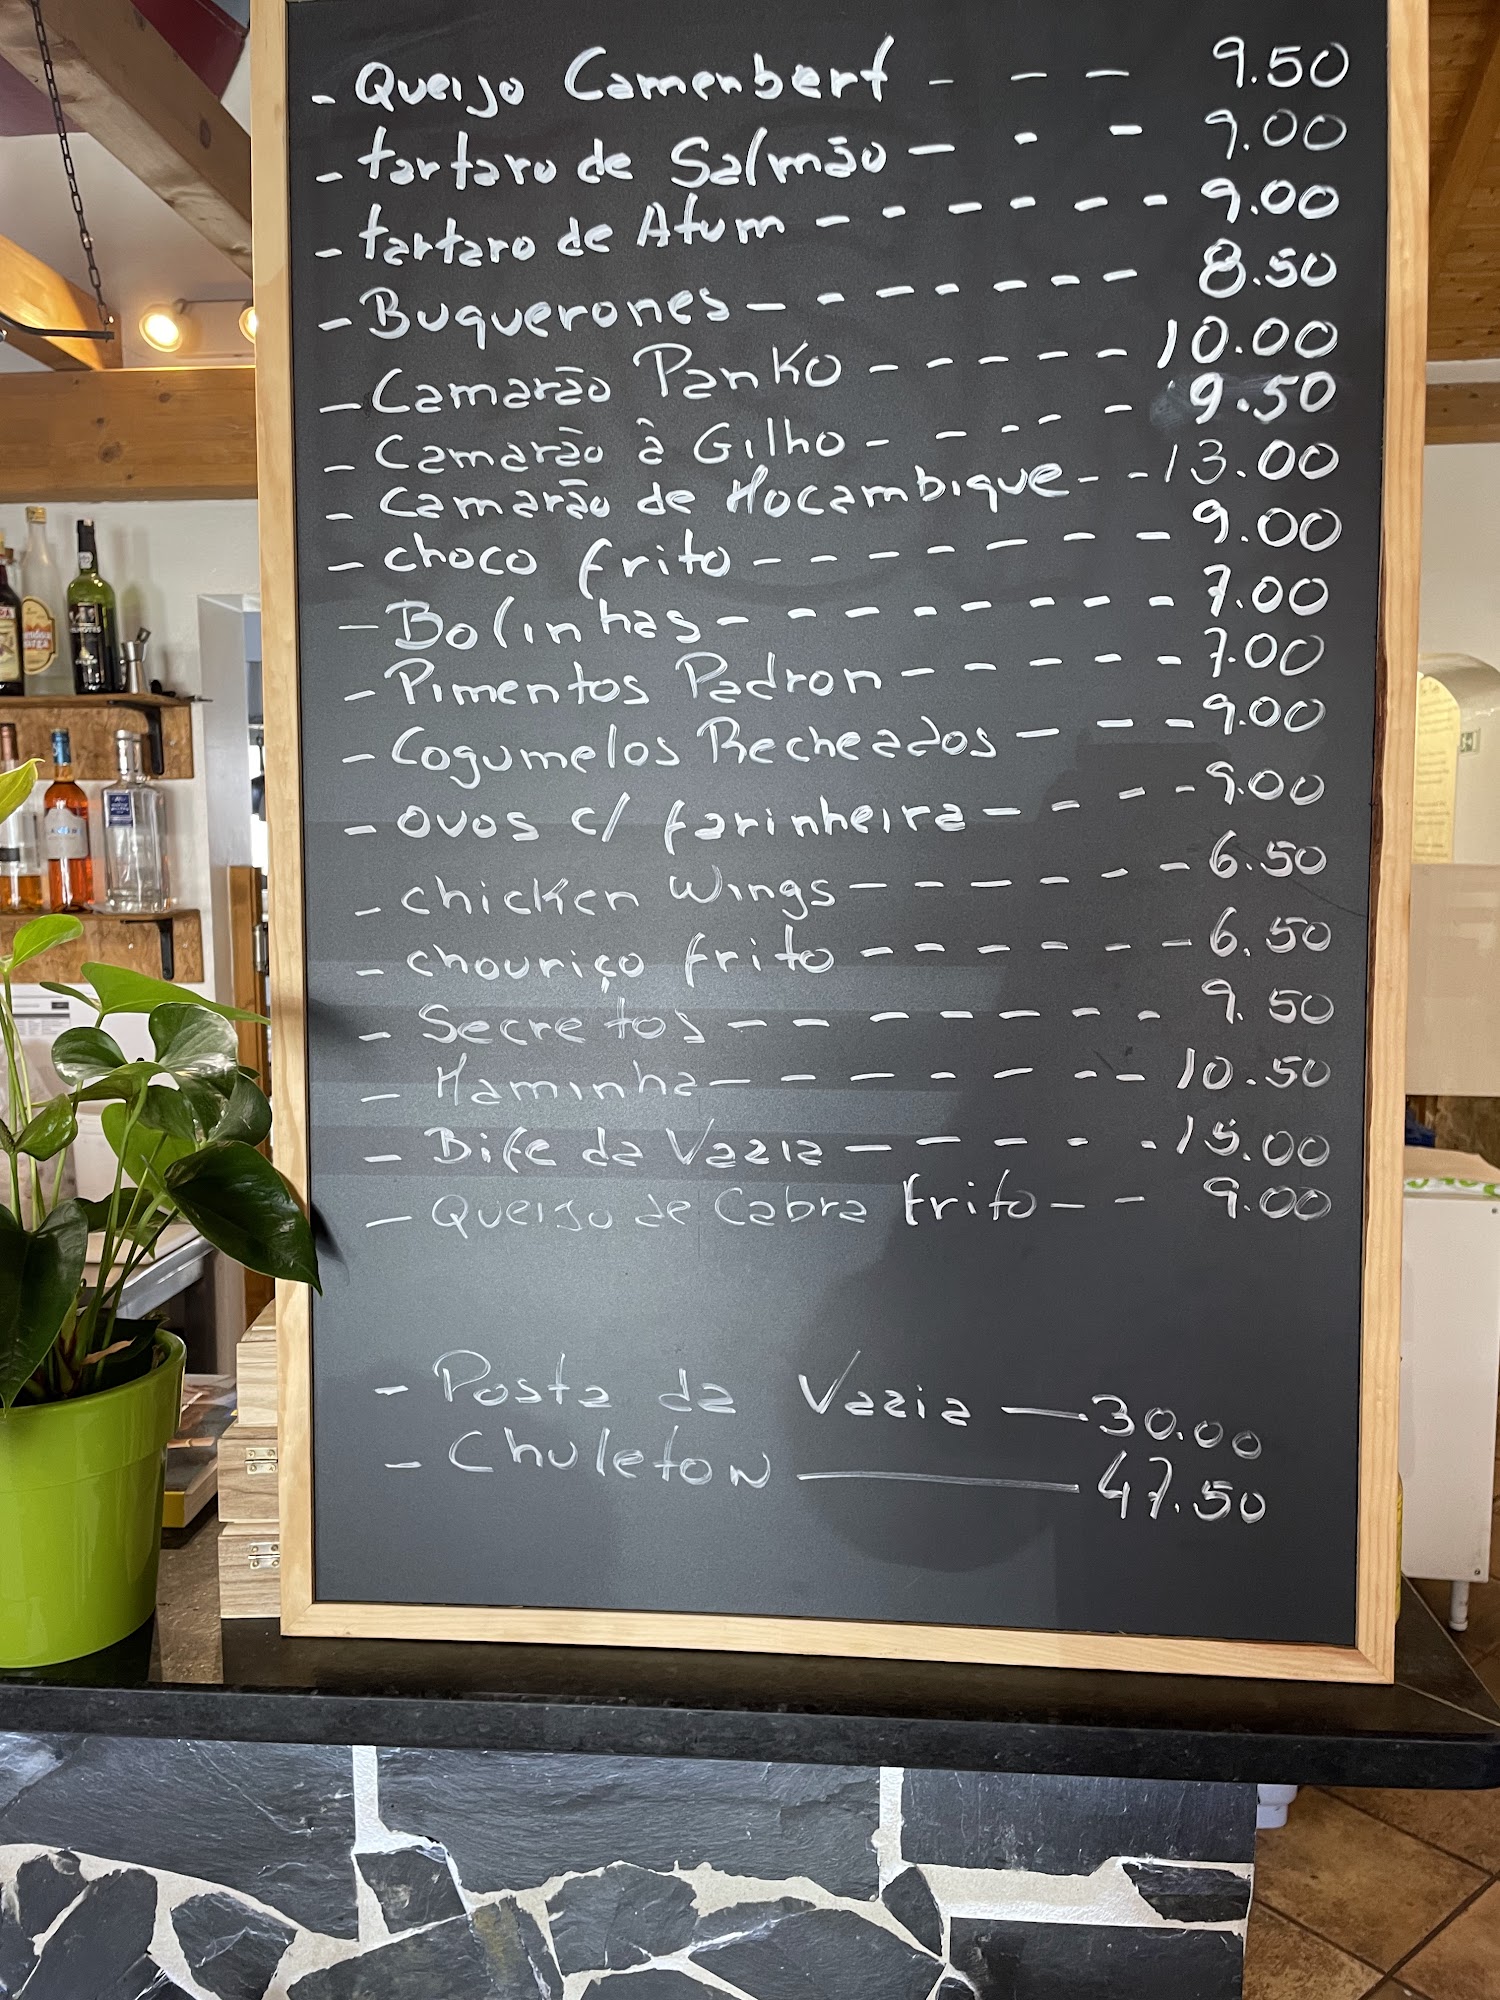 - Queijo Camenbert - - - 9.50
- tartaro de Salmão - - - 9.00
- tartaro de Atum - - - - - - 9.00
- Buquerones - - - - - - - 8.50
- Camarão Panko - - - - - 10.00
- Camarão à Gilho - - - - - 9.50
- Camarão de Moçambique - - 13.00
- choco frito - - - - - - - 9.00
- Bolinhas - - - - - - - - 7.00
- Pimentos Padron - - - - - 7.00
- Cogumelos Recheados - - - 9.00
- ovos c/ farinheira - - - - 9.00
- chicken Wings - - - - - - 6.50
- chouriço frito - - - - - - 6.50
- Secretos - - - - - - - - 9.50
- Maminha - - - - - - - - 10.50
- Bife da Vazia - - - - - - 15.00
- Queijo de Cabra Frito - - 9.00
- Posta da Vazia — 30.00
- Chuleton — 47.50